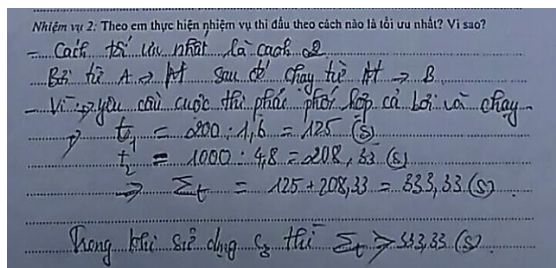 Nhiệm vụ 2: Theo em thực hiện nhiệm vụ thi đấu theo cách nào là tối ưu nhất? Vì sao?
- Cách tối ưu nhất là cách 2
Bơi từ A → M sau đó chạy từ M → B
- Vì → yêu cầu cuộc thi phải phối hợp cả bơi và chạy
t₁ = 200 : 1,6 = 125 (s)
t₂ = 1000 : 4,8 = 208,33 (s)
⇒ Σt = 125 + 208,33 = 333,33 (s)
Trong khi sử dụng C3 thì Σt > 333,33 (s)